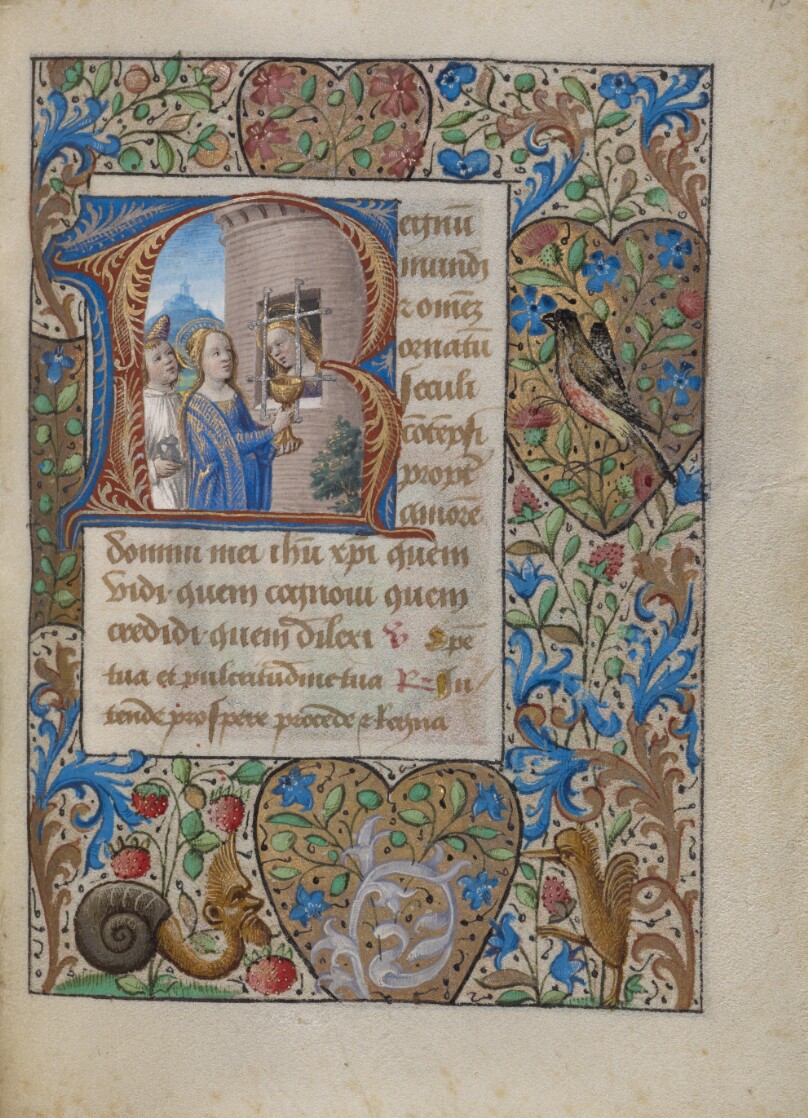 Regnū
mundi
⁊ omēꝫ
ornatū
seculi
cōtēpsi
propt̄
amorē
domini mei ihū xpi quem
vidi quem cognoui quem
credidi quem dilexi ꝟ Spē
tua et pulcritudine tua ℟ In
tende prospere procede ⁊ Regna